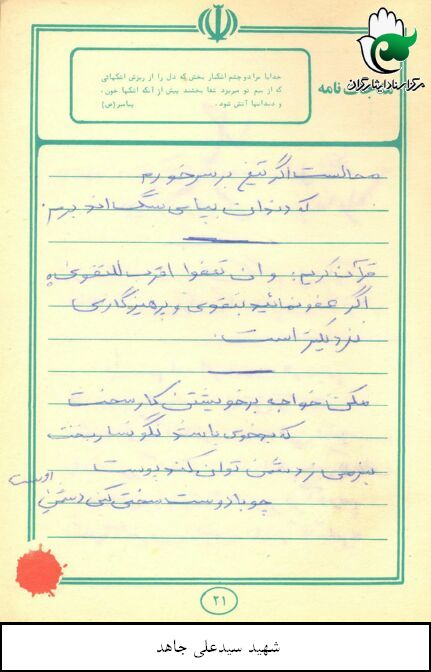 مرکز اسناد ایثارگران
مناجات نامه
خدایا مرا دو چشم اشکبار بخش که دل را از ریزش اشکهائی
که از بیم تو میریزد شفا بخشند پیش از آنکه اشکها خون،
و دندانها آتش شود. پیامبر (ص)
محالست اگر تیغ بر سر خورم
که دندان بپای سگ اندر برم.
قرآن کریم: و ان تعفوا اقرب للتقوی
اگر عفو نمائید بتقوی و پرهیزگاری
نزدیکتر است.
مکن خواجه بر خویشتن کار سخت
که بدخوی باشد نگونسار بخت
بنرمی ز دشمن توان کند پوست
چو با دوست سختی کنی دشمن اوست
۲۱
شهید سیدعلی جاهد